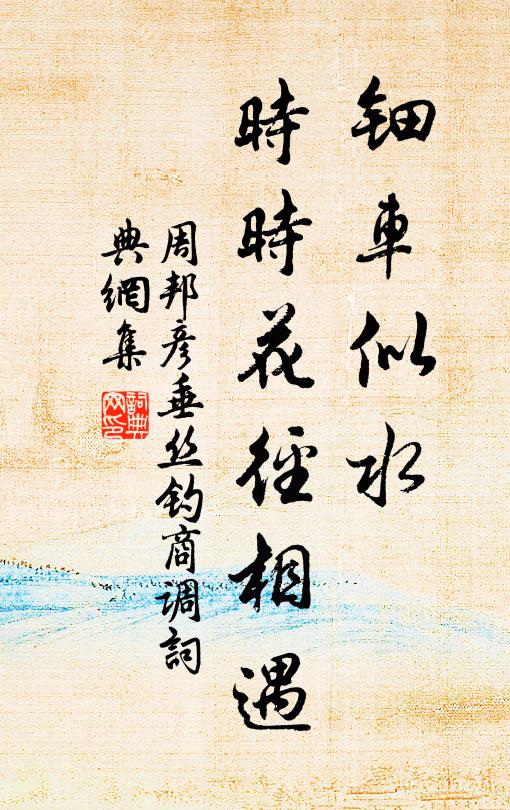 钿車似水
時時花徑相遇
周邦彦垂丝钓商调詞
典網集
詞典網印